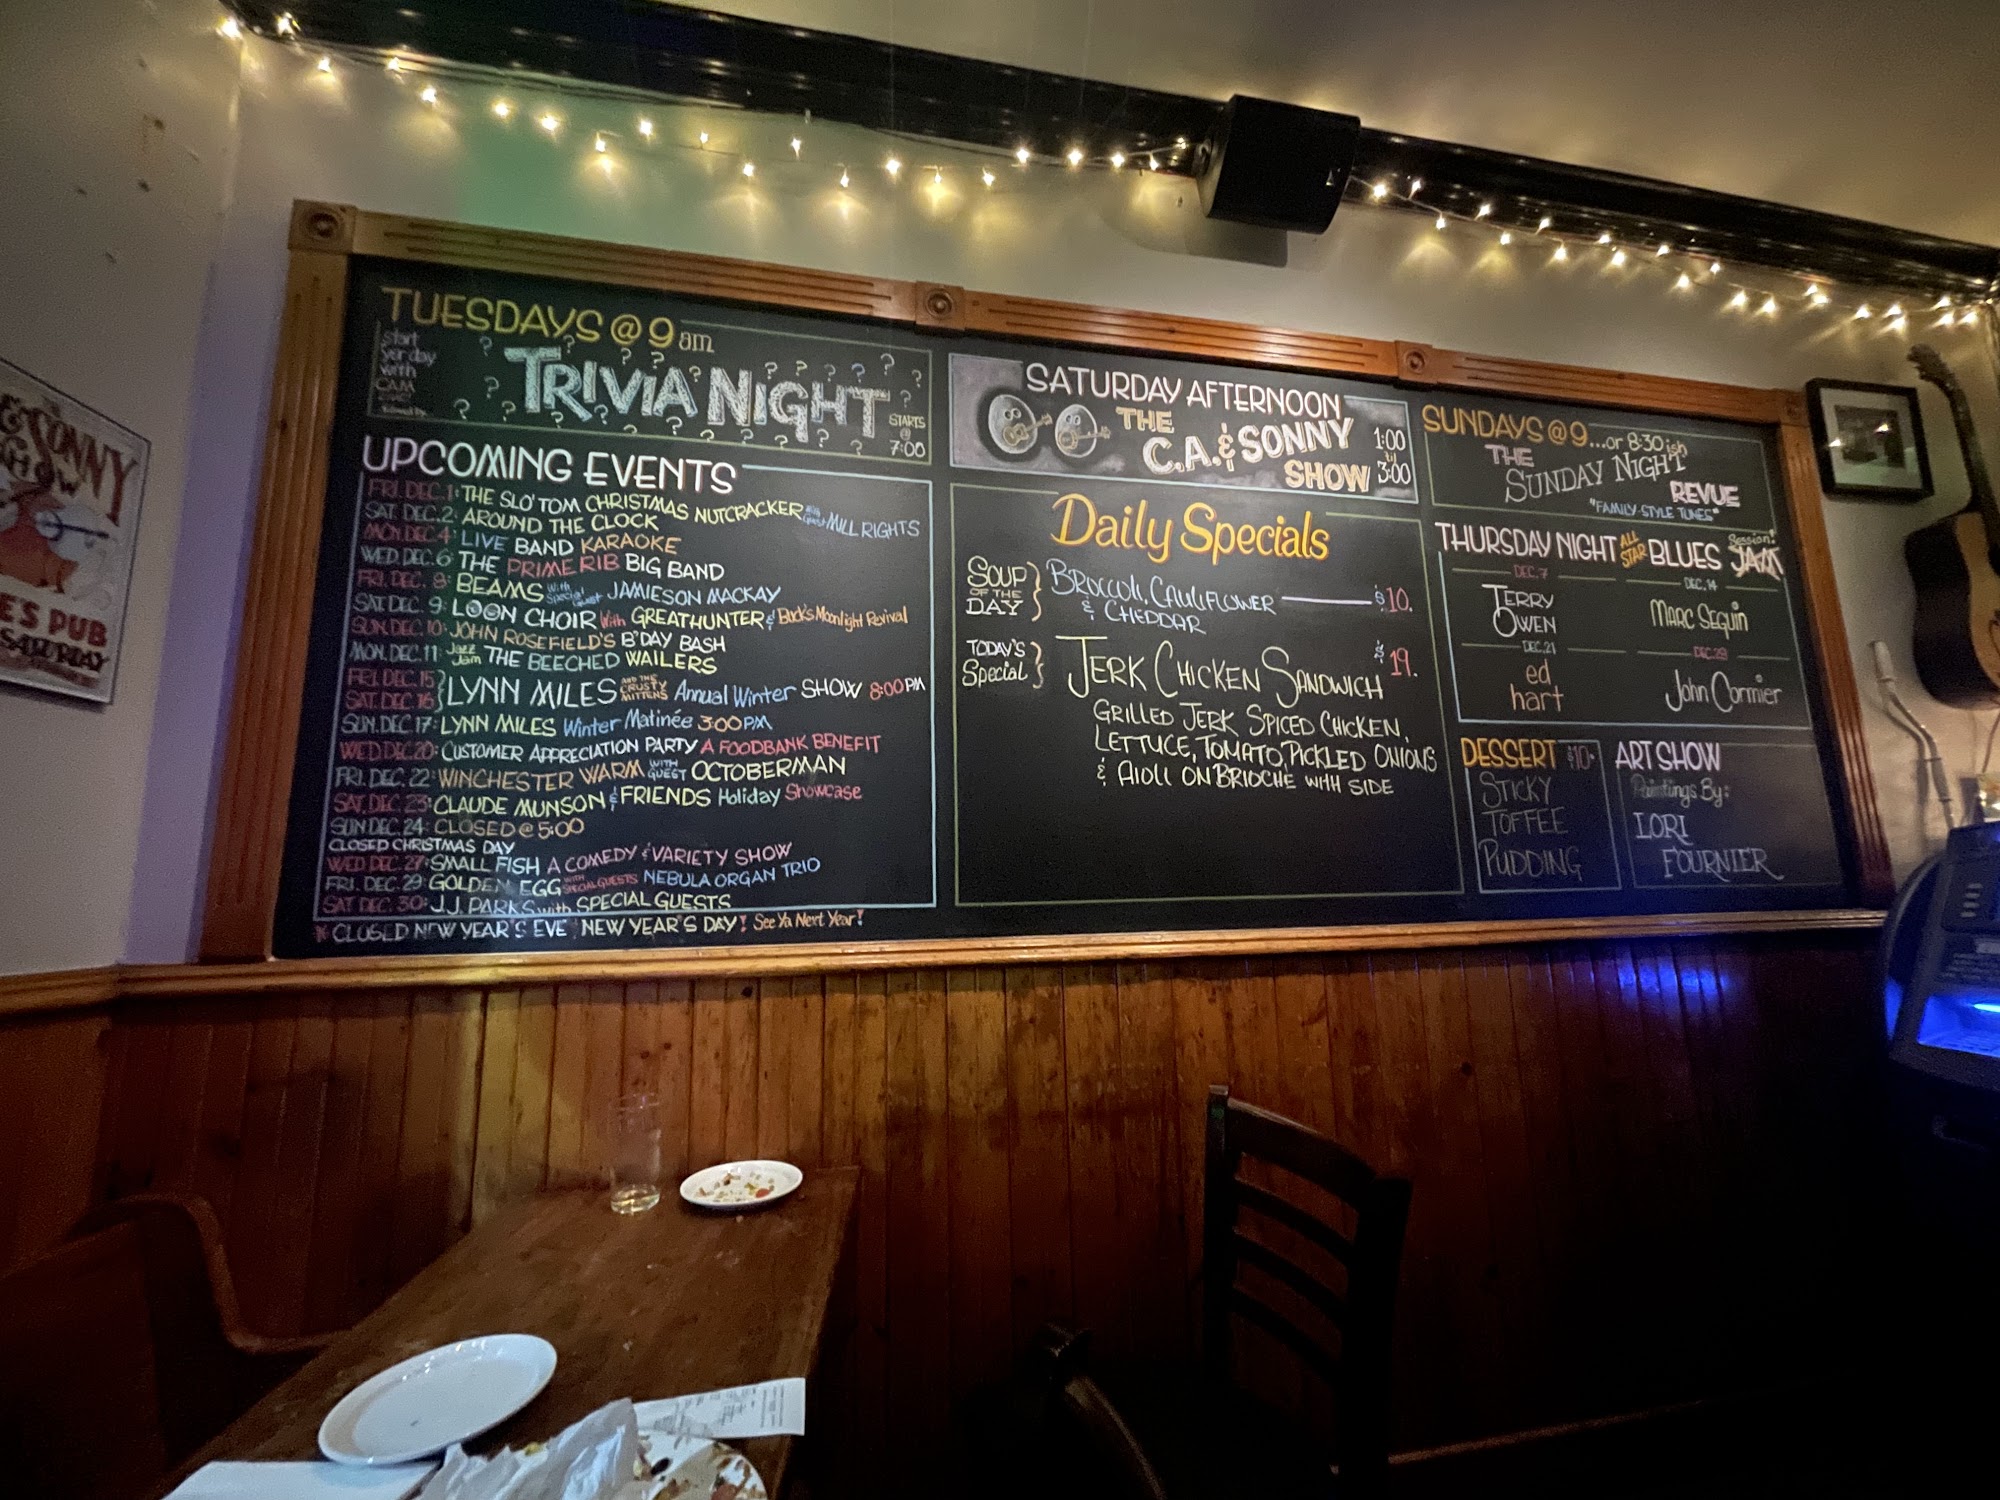 & SONNY
SHOW
E'S PUB
SATURDAY
TUESDAYS @ 9 am
start
yer day
with
CAM
TRIVIA NIGHT
STARTS
@
7:00
UPCOMING EVENTS
FRI. DEC. 1: THE SLO' TOM CHRISTMAS NUTCRACKER MILL RIGHTS
SAT. DEC. 2: AROUND THE CLOCK
MON. DEC. 4: LIVE BAND KARAOKE
WED. DEC. 6: THE PRIME RIB BIG BAND
FRI. DEC. 8: BEAMS With Special Guest JAMIESON MACKAY
SAT. DEC. 9: LOON CHOIR With GREATHUNTER & Buck's Moonlight Revival
SUN. DEC. 10: JOHN ROSEFIELD'S B'DAY BASH
MON. DEC. 11: Jazz Jam THE BEECHED WAILERS
FRI. DEC. 15
SAT. DEC. 16 } LYNN MILES AND THE CRUSTY MITTENS Annual Winter SHOW 8:00 PM
SUN. DEC. 17: LYNN MILES Winter Matinée 3:00 PM
WED. DEC. 20: CUSTOMER APPRECIATION PARTY A FOODBANK BENEFIT
FRI. DEC. 22: WINCHESTER WARM WITH GUEST OCTOBERMAN
SAT. DEC. 23: CLAUDE MUNSON & FRIENDS Holiday Showcase
SUN. DEC. 24: CLOSED @ 5:00
CLOSED CHRISTMAS DAY
WED. DEC. 27: SMALL FISH A COMEDY & VARIETY SHOW
FRI. DEC. 29: GOLDEN EGG WITH SPECIAL GUESTS NEBULA ORGAN TRIO
SAT. DEC. 30: J.J. PARKS with SPECIAL GUESTS
* CLOSED NEW YEAR'S EVE NEW YEAR'S DAY! See Ya Next Year!
SATURDAY AFTERNOON
THE
C.A. & SONNY
SHOW
1:00
til
3:00
Daily Specials
SOUP OF THE DAY } BROCCOLI, CAULIFLOWER $10.
& CHEDDAR
TODAY'S Special } JERK CHICKEN SANDWICH $19.
GRILLED JERK SPICED CHICKEN,
LETTUCE, TOMATO, PICKLED ONIONS
& AIOLI ON BRIOCHE WITH SIDE
SUNDAYS @ 9...or 8:30 ish
THE
SUNDAY NIGHT
REVUE
"FAMILY-STYLE TUNES"
THURSDAY NIGHT ALL STAR BLUES JAM Session!
DEC. 7
TERRY
OWEN
DEC. 14
MARC SEGUIN
DEC. 21
ed
hart
DEC. 28
John Cormier
DESSERT $10.
STICKY
TOFFEE
PUDDING
ART SHOW
Paintings By:
LORI
FOURNIER